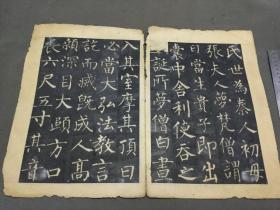 氏世為秦人初母
張夫人夢梵僧謂
曰當生貴子即出
囊中舍利使吞之
及誕所夢僧白晝
入其室摩其頂曰
必當大弘法教言
訖而滅既成人高
顙深目大頤方口
長六尺五寸其音